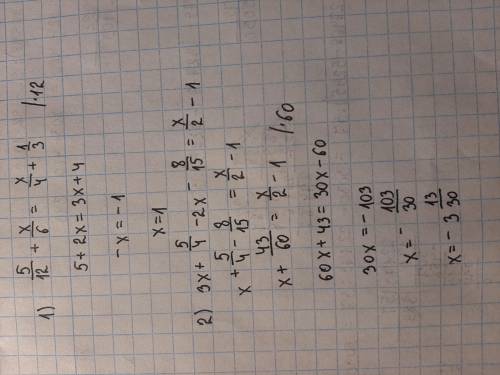 1) 5/12 + x/6 = x/4 + 1/3 /·12
5 + 2x = 3x + 4
-x = -1
x = 1
2) 3x + 5/4 - 2x - 8/15 = x/2 - 1
x + 5/4 - 8/15 = x/2 - 1
x + 43/60 = x/2 - 1 /·60
60x + 43 = 30x - 60
30x = -103
x = - 103/30
x = -3 13/30